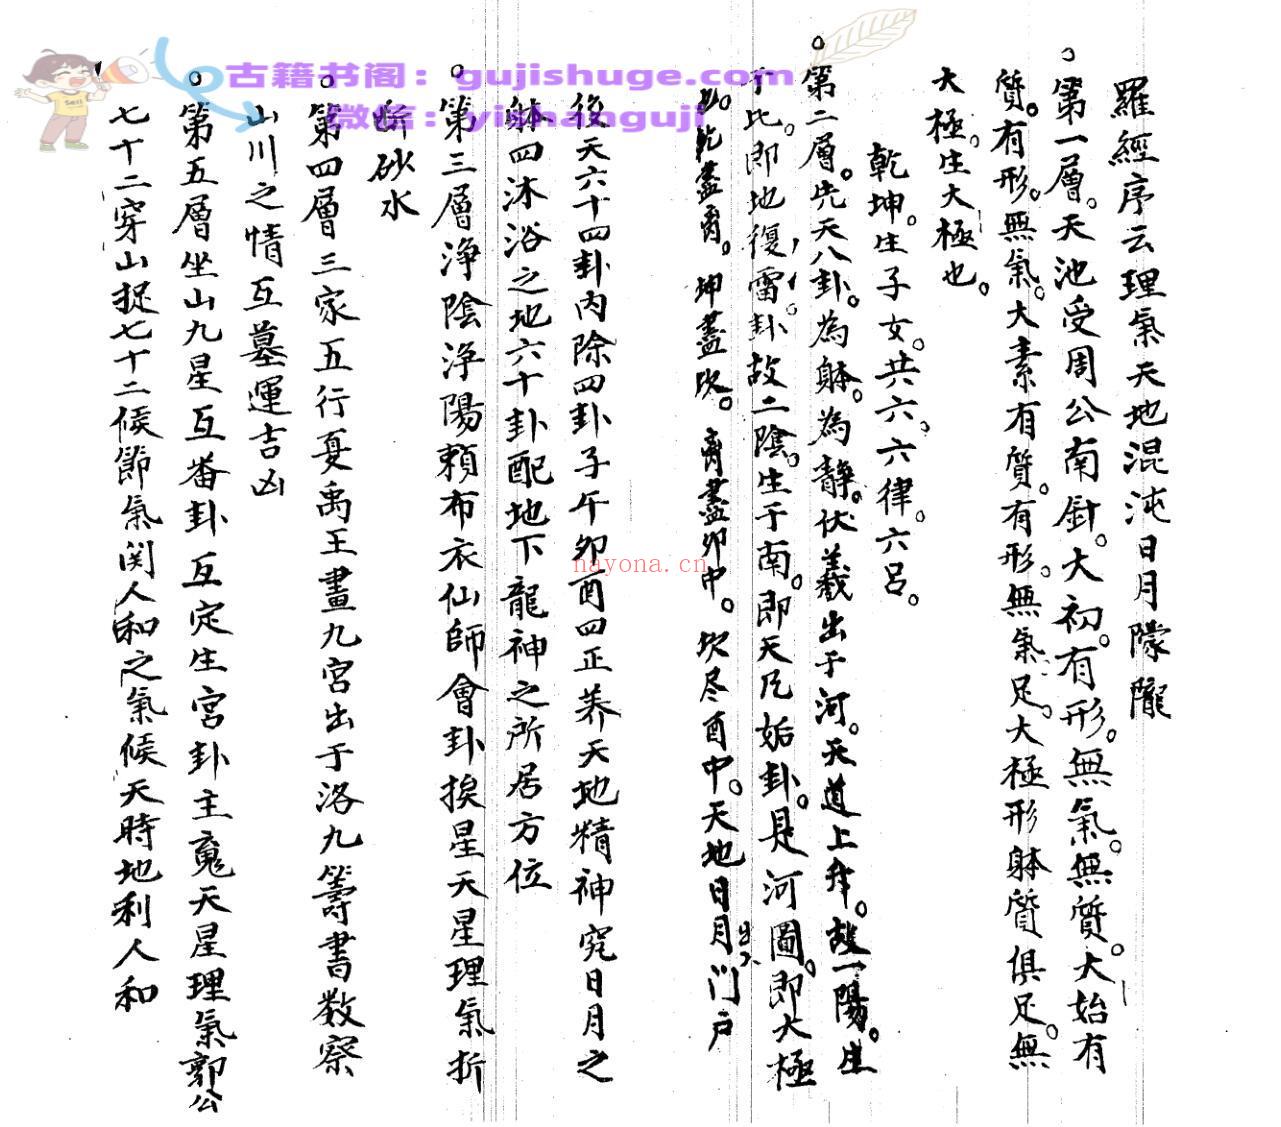 古籍书阁：gujishuge.com
微信：yishanguji
nayona.cn
羅經序云理氣天地混沌日月朦朧
第一層。天池受周公南針。大初。有形。無氣。無質。大始有
質。有形。無氣。大素有質。有形。無氣足。大極形躰質俱足。無
大極。生大極也。
乾坤。生子女。共六。六律。六呂。
第二層。先天八卦。為躰。為靜。伏羲出于河。天道上升。故一陽。生
于北。即地復雷卦。故二陰。生于南。即天風姤卦。是河圖。即大極
乾盡离。坤盡坎。离盡卯中。坎尽酉中。天地日月门户
後天六十四卦內除四卦子午卯酉四正养天地精神究日月之
躰四沐浴之地六十卦配地下龍神之所居方位
第三層净陰净陽賴布衣仙師會卦挨星天星理氣折
斷砂水
第四層三家五行夏禹王畫九宮出于洛九籌書数察
山川之情互墓運吉凶
第五層坐山九星互番卦互定生宮卦主天星理氣郭公
七十二穿山捉七十二候節氣関人和之氣候天時地利人和